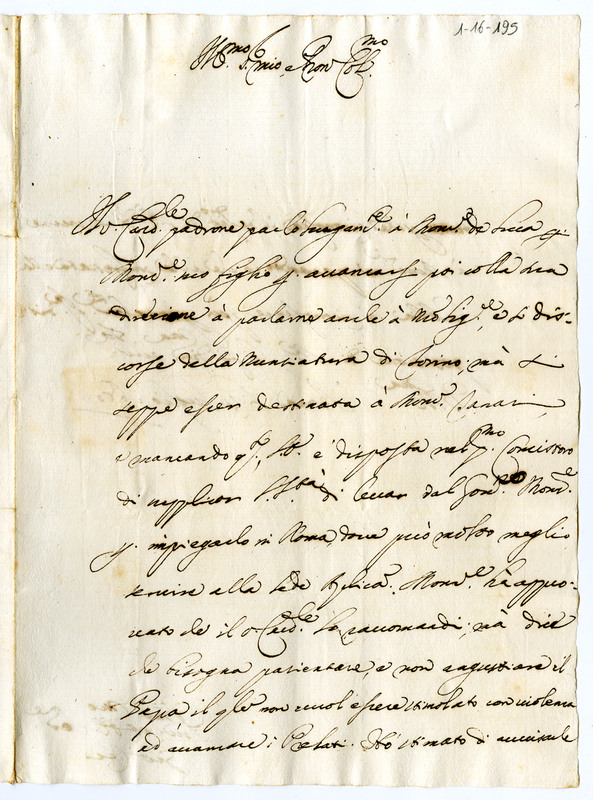 1-16-195
Ill.mo S. mio, e Pron Col.mo
Il Card.le padrone parlò lungam.te à Mons.r de Luca p.
Mons.r suo figlio p. avanzarsi poi colla sua
direzione à parlarne anche à N. Sig.re, e si dis-
corse della Nunziatura di Torino; mà si
seppe esser destinata à Mons.r
e mancando q.ta, S. E. è disposta nel p.mo Concistoro
di supplicar S. S.tà di levar dal Gov.no Mons.r
p. impiegarlo in Roma, dove può molto meglio
servire alla Sede Aplica. Mons.r hà appro-
vato che il S. Card.le lo raccomandi; mà dice
che bisogna patientare, e non angustiare il
Papa il qle non vuol essere stimolato con violenza
ed avanzare i Prelati. Hò stimato di avvisarle